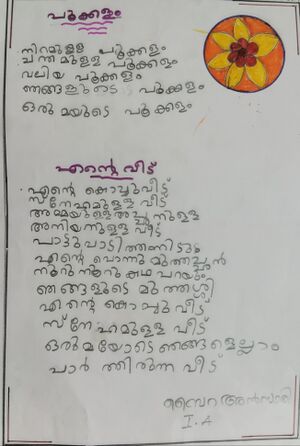 പൂക്കളം
നിറമുള്ള പൂക്കളം
ചന്തമുള്ള പൂക്കളം
വലിയ പൂക്കളം
ഞങ്ങളുടെ പൂക്കളം
ഒരുമയുടെ പൂക്കളം
എന്റെ വീട്
എന്റെ കൊച്ചുവീട്
സ്നേഹമുള്ള വീട്
അമ്മയുള്ള അച്ഛനുള്ള
അനിയനുള്ള വീട്
പാട്ടുപാടിത്തന്നിടും
എന്റെ പൊന്നു മുത്തച്ഛൻ
നൂറു നൂറു കഥ പറയും
ഞങ്ങളുടെ മുത്തശ്ശി
എന്റെ കൊച്ചു വീട്
സ്നേഹമുള്ള വീട്
ഒരുമയോടെ ഞങ്ങളെല്ലാം
പാർത്തിരുന്ന വീട്
അൻസാരി
I.A